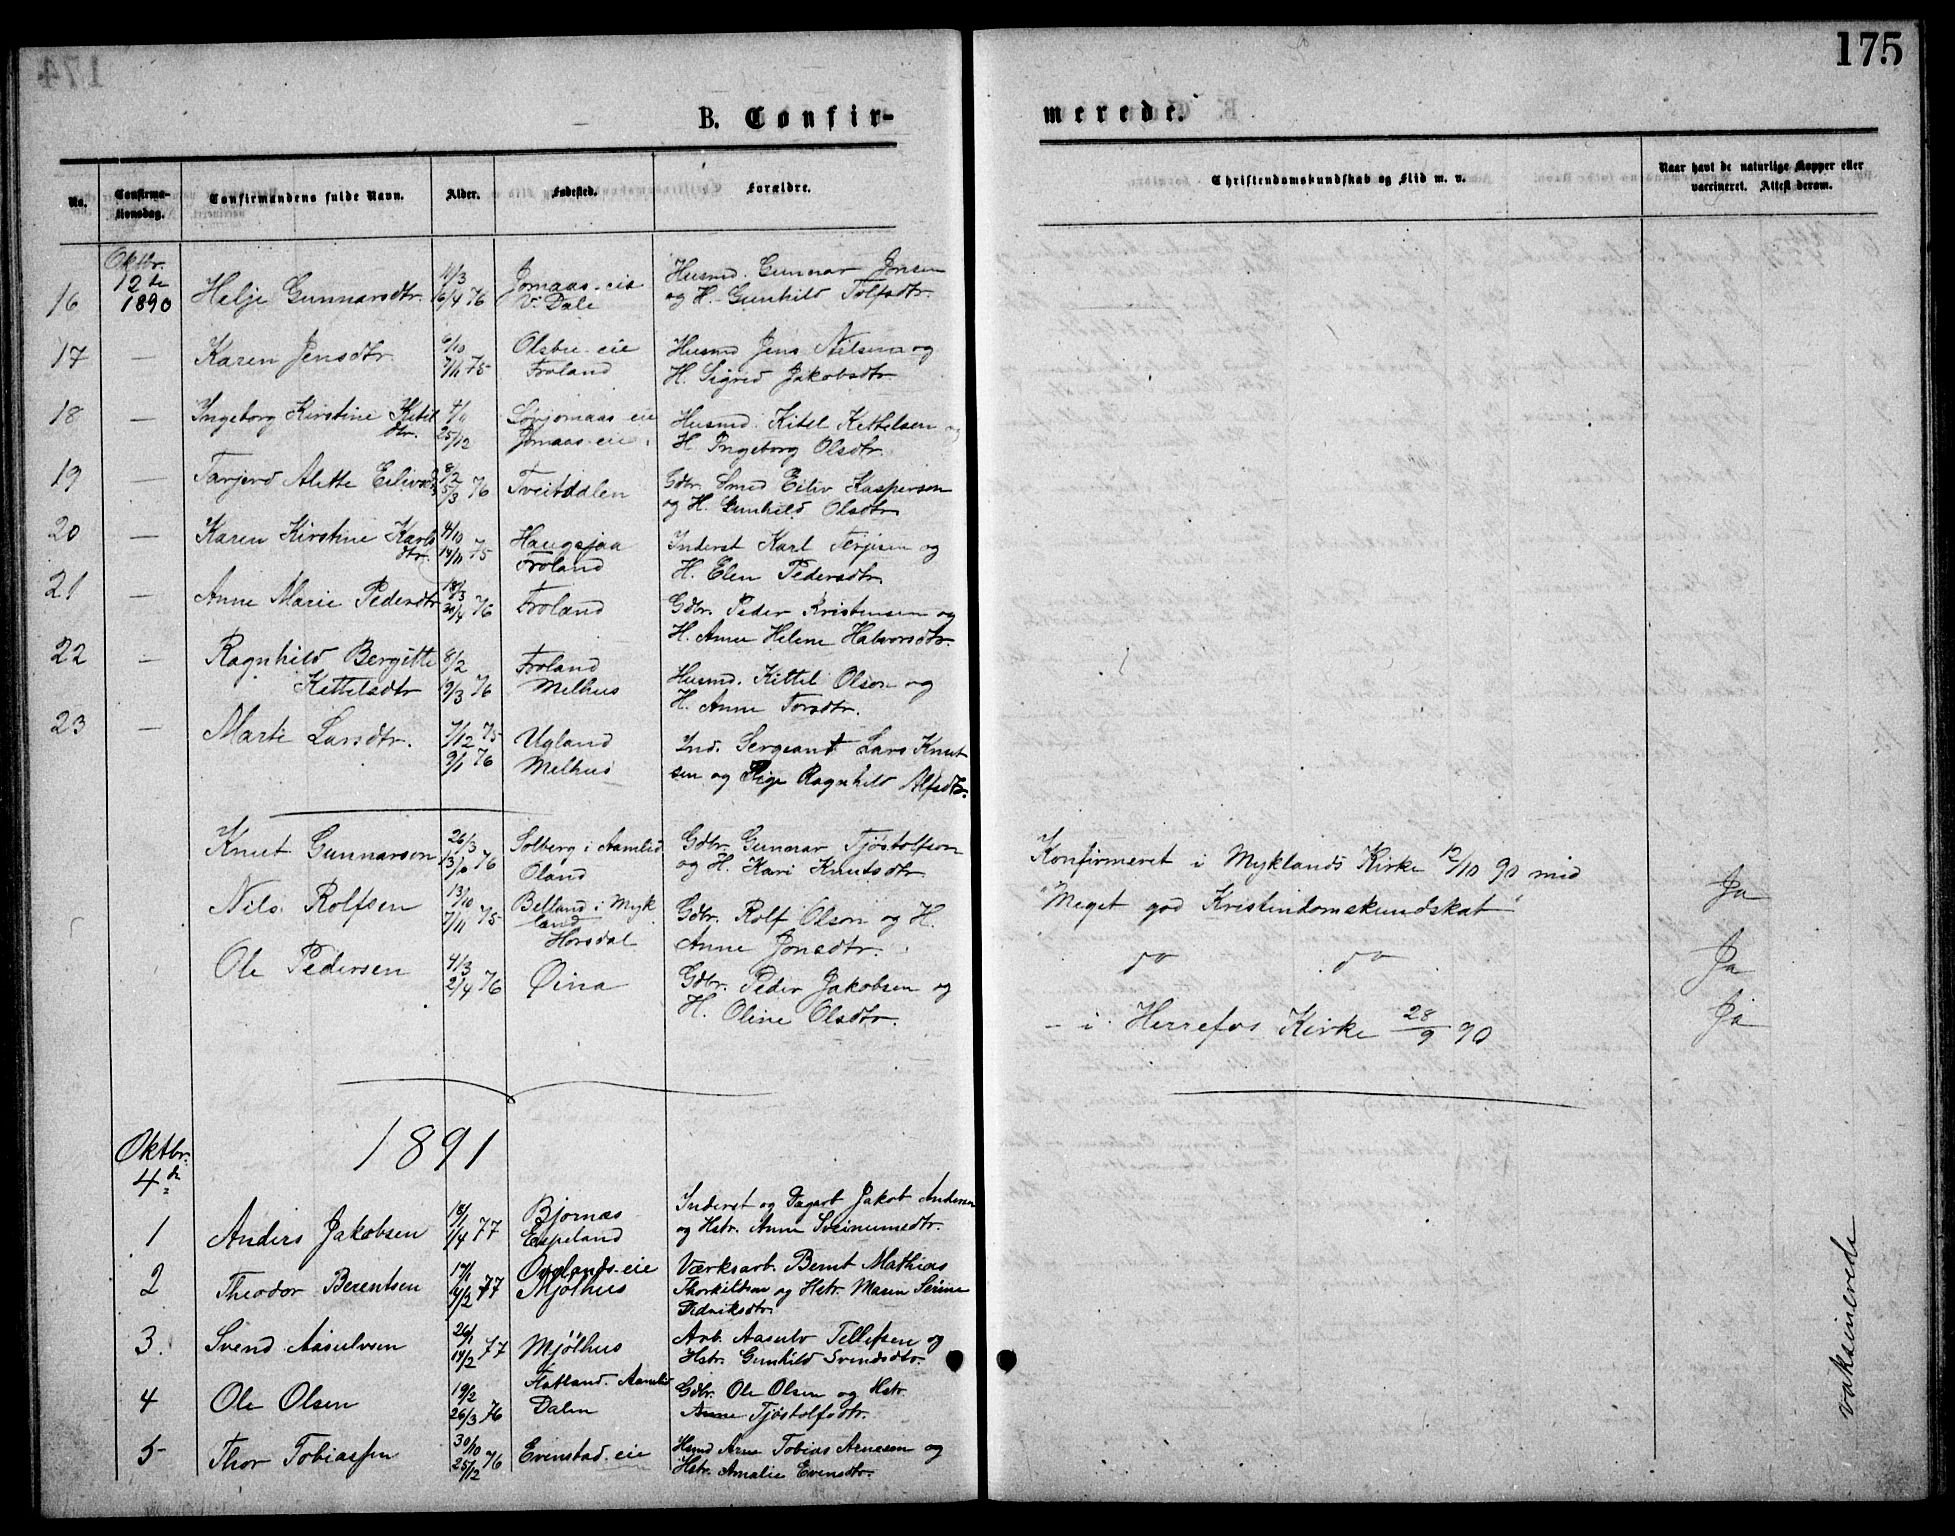 175
B. Confir-
merede.
No.
Confirma-
tionsdag.
Confirmandens fulde Navn.
Alder.
Fødested.
Forældre.
Christendomskundskab og Flid m. v.
Naar havt de naturlige Kopper eller
vaccineret. Attest derom.
Oktbr.
12te
1890
16 Helje Gunnarsdtr. 1/3 16/4 76 Jomaas-eie V. Dale
Husmd. Gunnar Jonsen
og H. Gunhild Tolfsdtr.
17 — Karen Jensdtr. 6/10 7/11 75 Olsbu-eie Froland
Husmd Jens Nilsen og
H. Sigrid Jakobsdtr
18 — Ingeborg Kirstine Kitil
dtr. 25/12 Sørjomaas eie Jomaas-eie
Husmd. Kitel Kettelsen og
H. Ingeborg Olsdtr.
19 — Tarjerd Alette Eilevsd 8/2 5/3 76 Tveitdalen
Gdbr. Smed Eiliv Kaspersen
og H. Gunhild Olsdtr.
20 — Karen Kirstine Karls
dtr. 4/10 14/11 75 Haugsjaa Froland
Inderst Karl Terjesen og
H. Elen Pedersdtr.
21 — Anne Marie Pedersdtr 18/3 76 Froland
Gdbr. Peder Kristensen og
H. Anne Helene Halvorsdtr.
22 — Ragnhild Bergitte 8/2 Froland
Kettelsdtr 19/3 76 Melhus
Husmd. Kittel Olson og
H. Anne Torsdtr.
23 — Marte Larsdtr. 7/12 75 Ugland
9/1 76 Melhus
Ind. Sergeant Lars Knut
sen og Pige Ragnhild Alfsdtr.
Knut Gunnarson 26/3 76 Solberg i Aamlid Oland
Gdbr. Gunnar Tjøstolfson
og H. Kari Knutsdtr
Konfirmeret i Myklands Kirke 12/10 90 med
"Meget god Kristindomskundskat" Ja
Nils Rolfsen 13/10 7/11 75 Belland i Myk
land Horsdal
Gdbr. Rolf Olson og H.
Anne Jonsdtr.
do do Ja
Ole Pedersen 4/3 2/4 76 Øina
Gdbr. Peder Jakobsen og
H. Oline Olsdtr.
- i Herrefos Kirke 28/9 90 Ja
1891
Oktbr.
4de
1 Anders Jakobsen 18/1 1/4 77 Bjornæs Espeland
Inderst og Dagarb Jakob Andersen
og Hstr. Anne Sveinumsdtr.
2 Theodor Berentsen 17/1 77 Uglands-eie Mjølhus
Værksarb. Bernt Mathias
Thorkildsen og Hstr. Maren Serine
Didriksdtr.
3. Svend Aasulvsen 26/1 18/2 77 Mjölhus
Arb. Aasulv Tellefsen og
Hstr. Gunhild Svendsdtr.
4 Ole Olsen 19/2 26/3 76 Flatland. Aamlid Dalen
Gdbr. Ole Olsen og Hstr.
Anne Tjøstolfsdtr.
5 Thor Tobiassen 30/10 25/12 76 Evenstad-eie
Husmd Arne Tobias Arnesen og
Hstr. Amalie Evensdtr.
vaksinerede